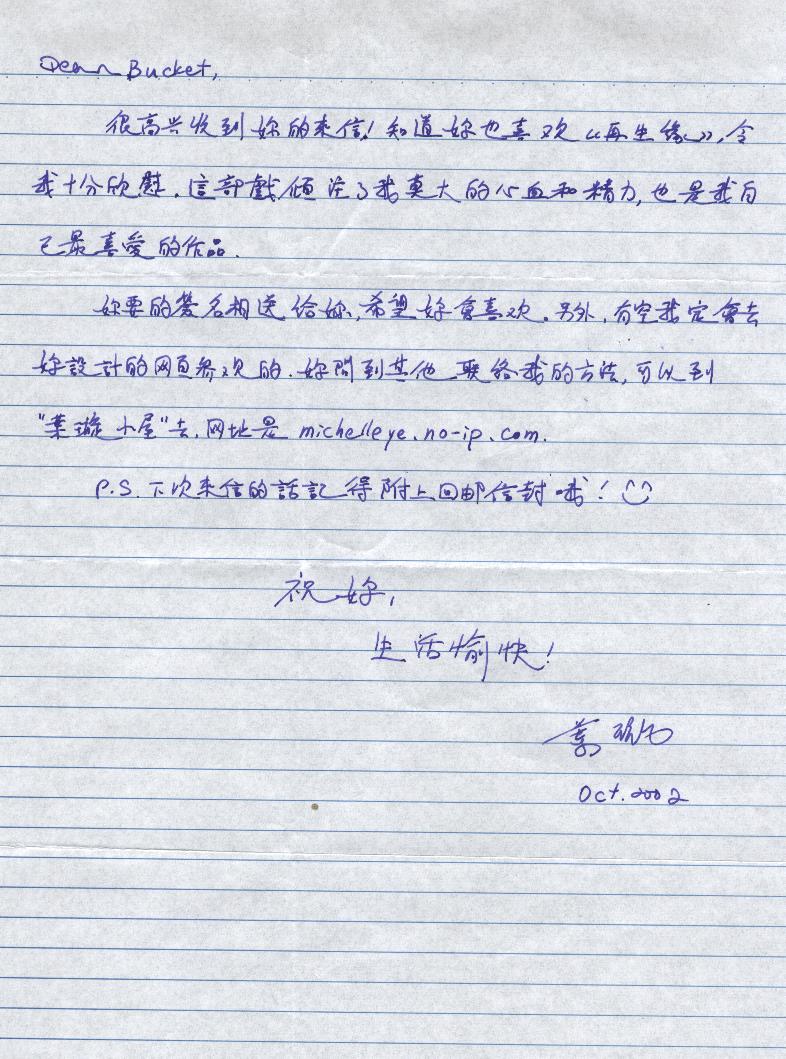 Dear Bucket,
很高兴收到妳的来信!知道妳也喜欢《再生缘》,令
我十分欣慰.這部戲傾注了我莫大的心血和精力,也是我自
己最喜愛的作品.
妳要的簽名相送給妳,希望妳會喜欢.另外,有空我定會去
妳設計的网頁参观的.妳問到其他联络我的方法,可以到
"葉璇小屋"去,网址是 michelleye.no-ip.com.
P.S.下次来信的話記得附上回邮信封哦!
祝妳,
生活愉快!
葉璇
Oct.2002